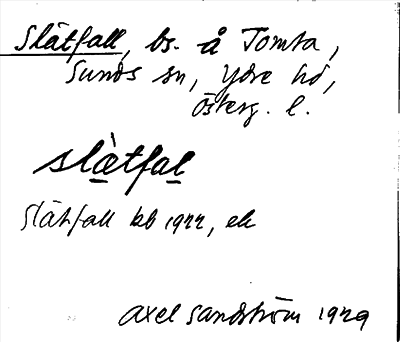 Slätfall, bs. å Tomta,
Sunds sn, Ydre hd,
Österg. l.
slàtfal
Slätfall kb 1922, ek
Axel Sandström 1929